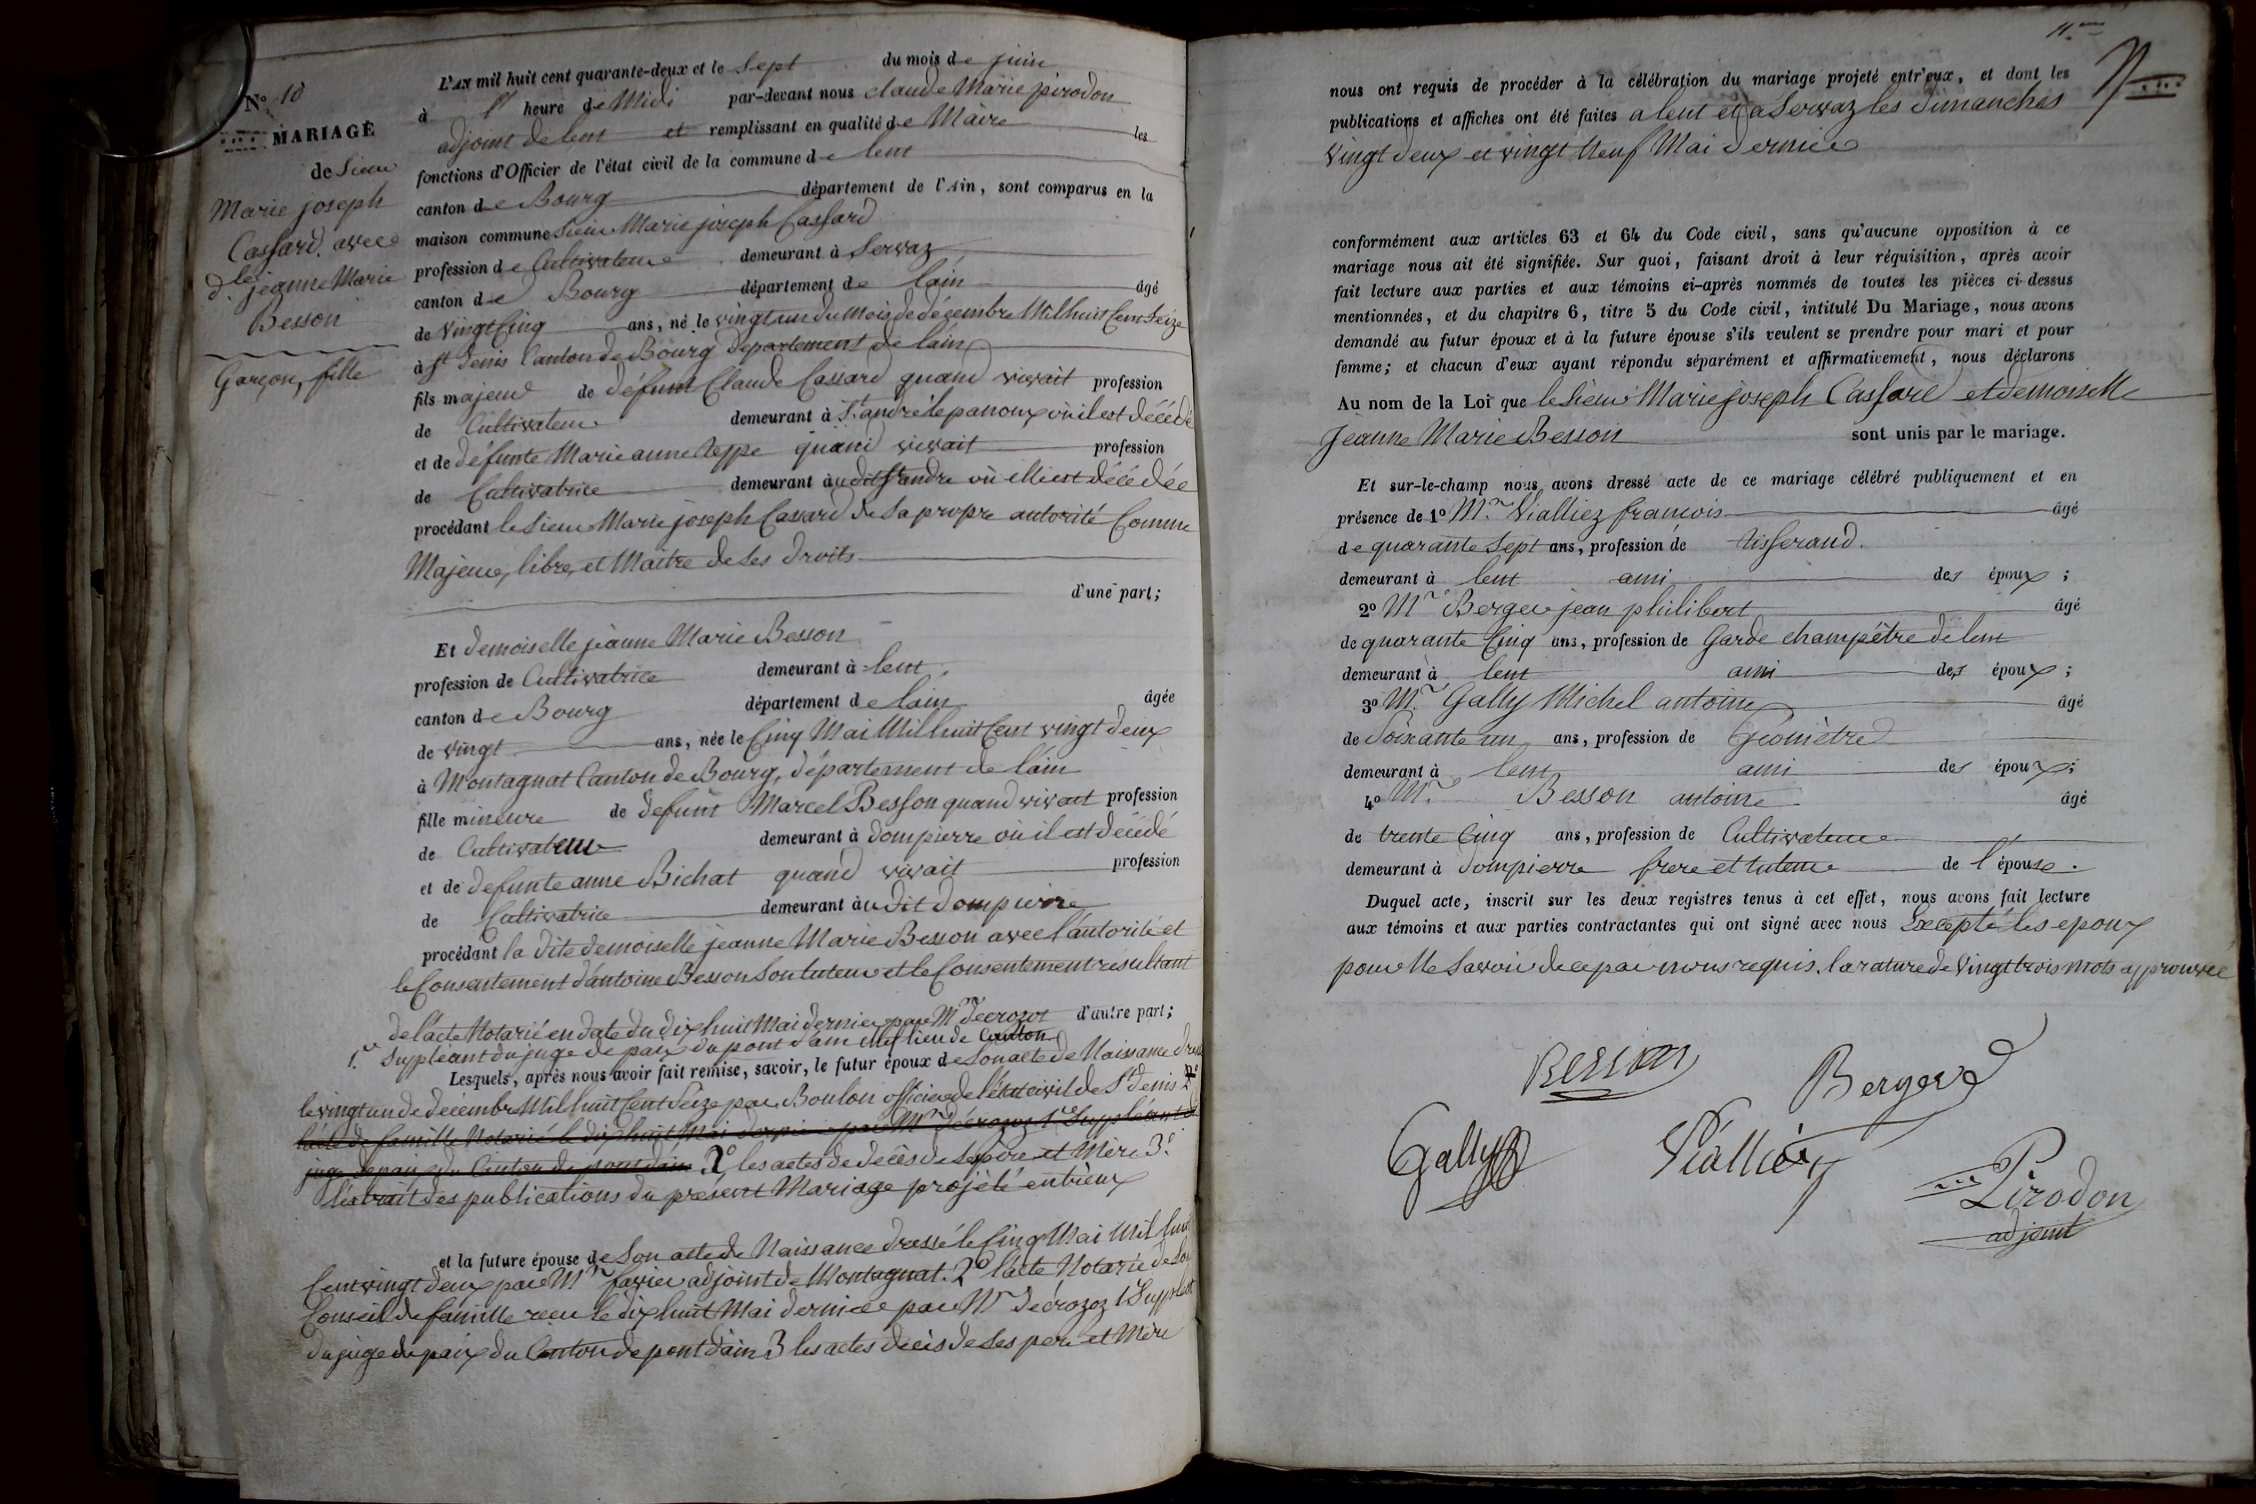 N° 10
MARIAGE
de Sieur
Marie joseph
Cassard avec
dlle jeanne Marie
Besson
Garçon, fille
L'AN mil huit cent quarante-deux et le Sept du mois de juin
à heure de Midi par-devant nous claude Marie pirodon
adjoint de lent et remplissant en qualité de Maire les
fonctions d'Officier de l'état civil de la commune de lent
canton de Bourg département de l'Ain, sont comparus en la
maison commune Sieur Marie joseph Cassard
profession de Cultivateur demeurant à Servaz
canton de Bourg département de lain âgé
de vingt Cinq ans, né le vingt un du Mois de décembre Mil huit Cent Seize
à St Denis Canton de Bourg département de lain
fils majeur de défunt Claude Cassard quand vivait profession
de Cultivateur demeurant à St andré le panoux où il est décédé
et de défunte Marie anne teppe quand vivait profession
de Cultivatrice demeurant audit St andré où elle est décédée
procédant le Sieur Marie joseph Cassard de Sa propre autorité Comme
Majeur, libre, et Maitre de Ses droits
d'une part;
Et demoiselle jeanne Marie Besson
profession de Cultivatrice demeurant à lent
canton de Bourg département de lain âgée
de vingt ans, née le Cinq Mai Mil huit Cent vingt deux
à Montagnat Canton de Bourg, département de lain
fille mineure de defunt Marcel Besson quand vivait profession
de Cultivateur demeurant à dompierre où il est décédé
et de defunte anne Bichat quand vivait profession
de Cultivatrice demeurant audit dompierre
procédant la dite demoiselle jeanne Marie Besson avec l'autorité et
le Consentement d'antoine Besson Son tuteur et le Consentement résultant
de l'acte Notarié en date du dix huit Mai dernier par Mr décrozoz d'autre part;
1.er Suppléant du juge de paix du pont d'ain chef lieu de Canton
Lesquels, après nous avoir fait remise, savoir, le futur époux de Son acte de Naissance dressé
le vingt un de décembre Mil huit Cent Seize par Boulon officier de l'état civil de St denis 2°
l'acte de famille Notarié le dix huit Mai dernier par Mr décrozoz 1er Suppléant du
juge de paix du Canton de pont dain 2° les actes de décès de Ses père et Mère 3°
l'extrait des publications du présent Mariage projeté entr'eux
et la future épouse de Son acte de Naissance dressé le Cinq Mai Mil huit
Cent vingt deux par Mr favier adjoint de Montagnat. 2° l'acte Notarié de Son
Conseil de famille reçu le dix huit Mai dernier par Mr décrozoz 1 Suppléant
du juge de paix du Canton de pont d'ain 3 les actes décès de Ses père et Mère
11.me
nous ont requis de procéder à la célébration du mariage projeté entr'eux, et dont les
publications et affiches ont été faites a lent et a Servaz les dimanches
vingt deux et vingt Neuf Mai dernier
conformément aux articles 63 et 64 du Code civil, sans qu'aucune opposition à ce
mariage nous ait été signifiée. Sur quoi, faisant droit à leur réquisition, après avoir
fait lecture aux parties et aux témoins ci-après nommés de toutes les pièces ci-dessus
mentionnées, et du chapitre 6, titre 5 du Code civil, intitulé Du Mariage, nous avons
demandé au futur époux et à la future épouse s'ils veulent se prendre pour mari et pour
femme; et chacun d'eux ayant répondu séparément et affirmativement, nous déclarons
Au nom de la Loi que le Sieur Marie joseph Cassard et demoiselle
Jeanne Marie Besson sont unis par le mariage.
Et sur-le-champ nous avons dressé acte de ce mariage célébré publiquement et en
présence de 1° Mr Vialliez françois âgé
de quarante Sept ans, profession de tisserand.
demeurant à lent ami des époux;
2° Mr Berger jean philibert âgé
de quarante Cinq ans, profession de Garde champêtre de lent
demeurant à lent ami des époux;
3° Mr Gally Michel antoine âgé
de Soixante un ans, profession de Géomètre
demeurant à lent ami des époux;
4° Mr Besson antoine âgé
de trente Cinq ans, profession de Cultivateur
demeurant à dompierre frere et tuteur de l'épouse.
Duquel acte, inscrit sur les deux registres tenus à cet effet, nous avons fait lecture
aux témoins et aux parties contractantes qui ont signé avec nous Excepté les epoux
pour Ne Savoir de ce par nous requis. la rature de Vingt trois mots approuvée
Besson
Berger
Gally
Vialliez
Pirodon
adjoint